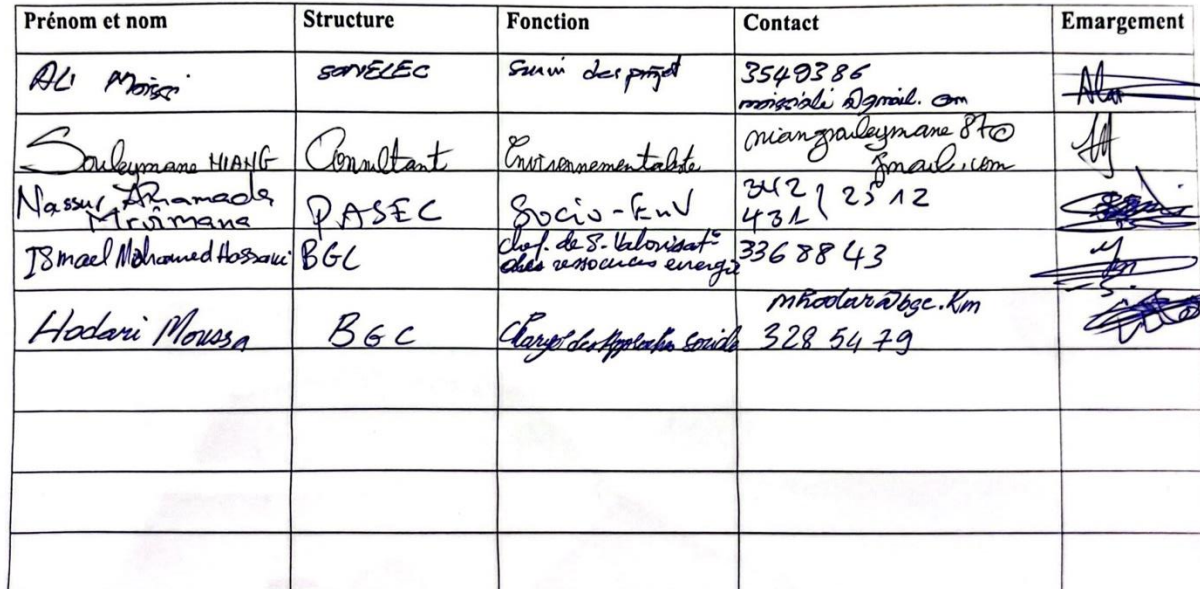 Prénom et nom Structure Fonction Contact Emargement
ALI Moissi SONELEC Suivi des projet 3549386
moissiali@gmail.com
Souleymane NIANG Consultant Environnementaliste niangsouleymane87@
gmail.com
Nassur Ahamada PASEC Socio-Env 342 / 25 12
Mroimana 431
ISmael Mohamed Hassani BGC Chef. de S. Valorisat° 336 88 43
des ressources energie
mhodar@bgc.Km
Hodari Moussa BGC Chargé des Approches Sociale 328 54 79